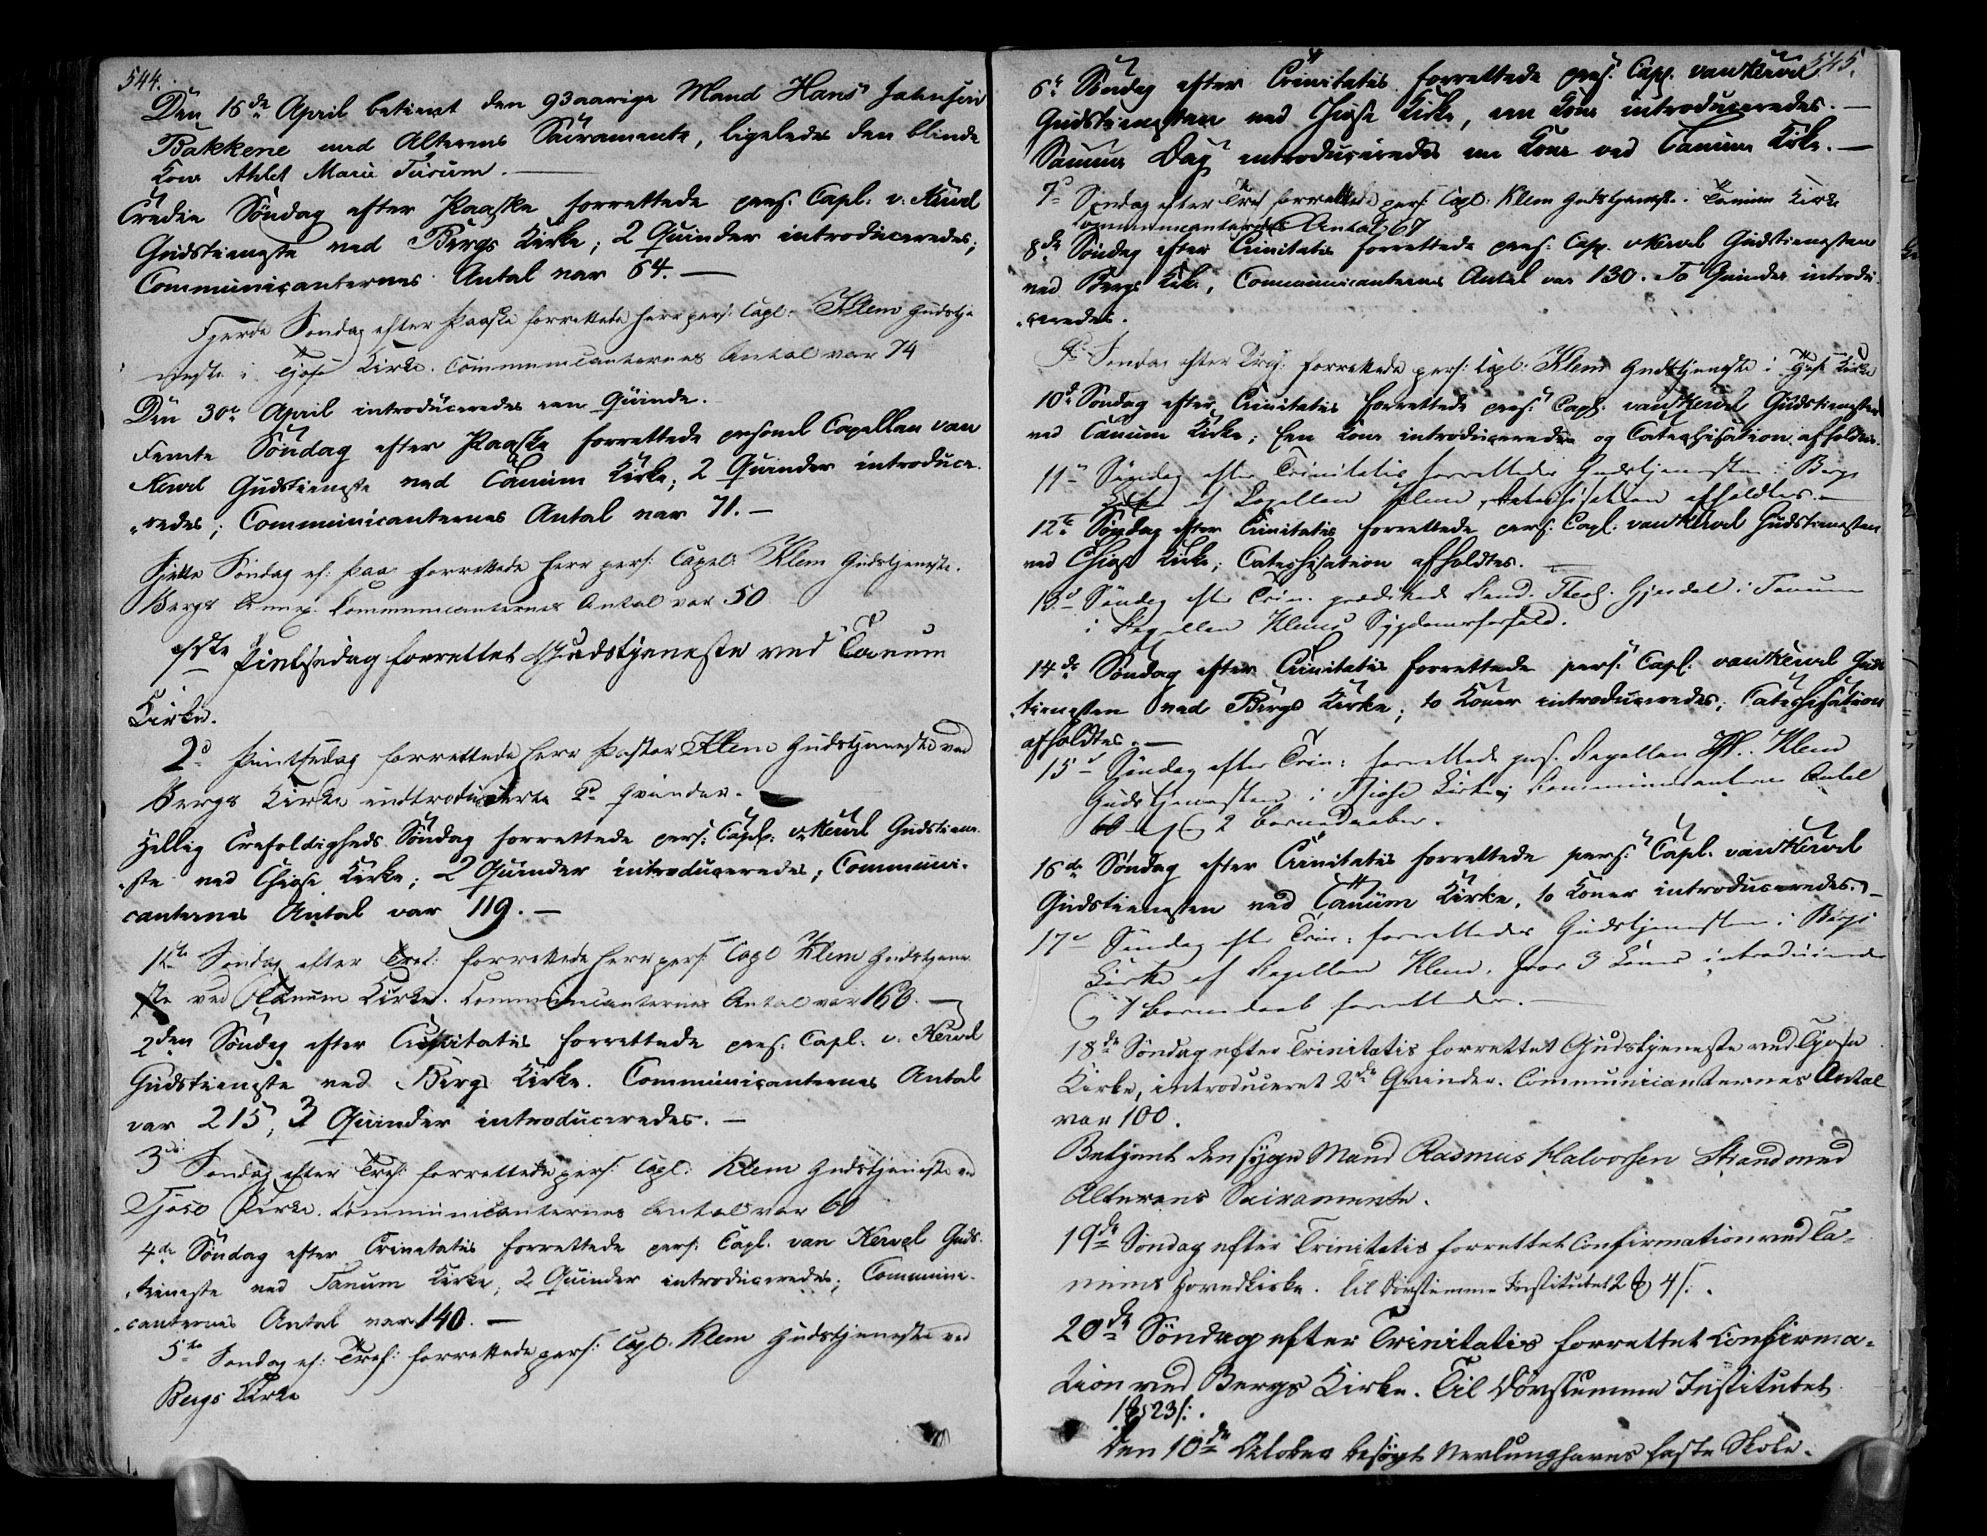 544.
Den 16de April betient den 93aarige Mand Hans Johnsen
Bakkene med Alterens Sacramente, ligeledes den blinde
Kone Ahlet Marie Furum. —
Tredie Søndag efter Paaske forrettede pers: Capl: v: Kervel
Gudstieneste ved Bergs Kirke; 2 Quinder introduceredes;
Communicanternes Antal var 64. —
Fjerde Søndag efter Paaske forrettede Herr pers: Capl: Klem Gudstje
neste i Tjose Kirke. Communicanternes Antal var 74
Den 30te April introduceredes een Quinde.
Femte Søndag efter Paaske forrettede personel Capellan van
Kervel Gudstieneste ved Tanum Kirke; 2 Quinder introduce-
redes; Communicanternes Antal var 71. —
Sjette Søndag ef: Paa: forrettede Herr pers: Capel: Klem Gudstjeneste.
Bergs Annex. Communicanternes Antal var 50
1ste Pintsedag forrettet Gudstjeneste ved Tanum
Kirke.
2d Pintsedag forrettede Herr Pastor Klem Gudstjeneste ved
Bergs Kirke indtroducerte 2de Qvinder.
Hellig Trefoldigheds Søndag forrettede pers: Capl: v: Kervel Gudstiene-
ste ved Thiose Kirke; 2 Quinder introduceredes; Communi-
canternes Antal var 119. —
1ste Søndag efter Tref: forrettede Herr pers: Capl Klem Gudstjene
ste ved Tanum Kirke. Communicanternes Antal var 160. —
2den Søndag efter Trinitatis forrettede pers: Capl. v. Kervel
Gudstieneste ved Bergs Kirke. Communicanternes Antal
var 215, 3 Quinder introduceredes. —
3die Søndag efter Tref: forrettede pers: Capl: Klem Gudstjeneste ved
Tjose Kirke. Communicanternes Antal var 60
4de Søndag efter Trinetatis forrettede pers: Capl. van Kervel Guds-
tieneste ved Tanum Kirke; 2 Quinder introduceredes; Communi-
canternes Antal var 140. —
5te Søndag ef: Tref: forrettede pers: Capl. Klem Gudstjeneste ved
Bergs Kirke
545.
6te Søndag efter Trinitatis forrettede pers: Cap. van Kervel
Gudstienesten ved Thiose Kirke, een Kone introduceredes. —
Samme Dag introduceredes een Kone ved Tanum Kirke. —
7de Søndag efter Tref forrettede pers: Capl: Klem Gudstjeneste i Tanum Kirke
Communicanternes Antal 67
8de Søndag efter Trinitatis forrettede pers: Cap. v Kervel Gudstienesten
ved Bergs Kirke, Communicanternes Antal var 130. To Quinder introdu-
ceredes.
9de Søndag efter Tref: forrettede pers: Capl: Klem Gudstjeneste i Tjose Kirke
10de Søndag efter Trinitatis forrettede pers: Capl. van Kervel Gudstienesten
ved Tanum Kirke; Een Kone introduceredes og Catechisation afholdtes.
11te Søndag efter Trinitatis forrettedes Gudstjenesten i Bergs
Kirke af Capellan Klem, Catechisation afholdtes. —
12te Søndag efter Trinitatis forrettede pers: Capl: van Kervel Gudstienesten
ved Thiose Kirke; Catechisation afholdtes. —
13de Søndag efter Trin: prædikede Cand. Theol. Gjerdal i Tanum
i Capellan Klems Sygdomsforfald.
14de Søndag efter Trinitatis forrettede pers: Capl. van Kervel Guds-
tienesten ved Bergs Kirke; to Koner introduceredes; Catechisation
afholdtes. —
15de Søndag efter Trin: forrettede pers. Capellan Hr. Klem
Gudstjenesten i Thiose Kirke; Communicanternes Antal
60 og 2 Barnedaaber.
16de Søndag efter Trinitatis forrettede pers: Capl. van Kervel
Gudstienesten ved Tanum Kirke, to Koner introduceredes. —
17de Søndag efter Trin: forrettedes Gudstjenesten i Bergs
Kirke af Capellan Klem, hvor 3 Koner introduceredes
og 1 Barnedaab forrettedes. —
18de Søndag efter Trinitatis forrettet Gudstjeneste ved Tjose
Kirke, introduceret 2de Qvinder. Communicanternes Antal
var 100.
Betjent den syge Mand Rasmus Halvorsen Strand med
Alterens Sacramente.
19de Søndag efter Trinitatis forrettet Confirmation ved Ta-
nums Hovedkirke. Til Døvstumme Institutet 2 Ϸ 4 ſ:.
20de Søndag efter Trinitatis forrettet Confirma-
tion ved Bergs Kirke. Til Døvstumme Institutet
1 Ϸ 23 ſ:.
Den 10de October besøgt Nevlunghavns faste Skole.